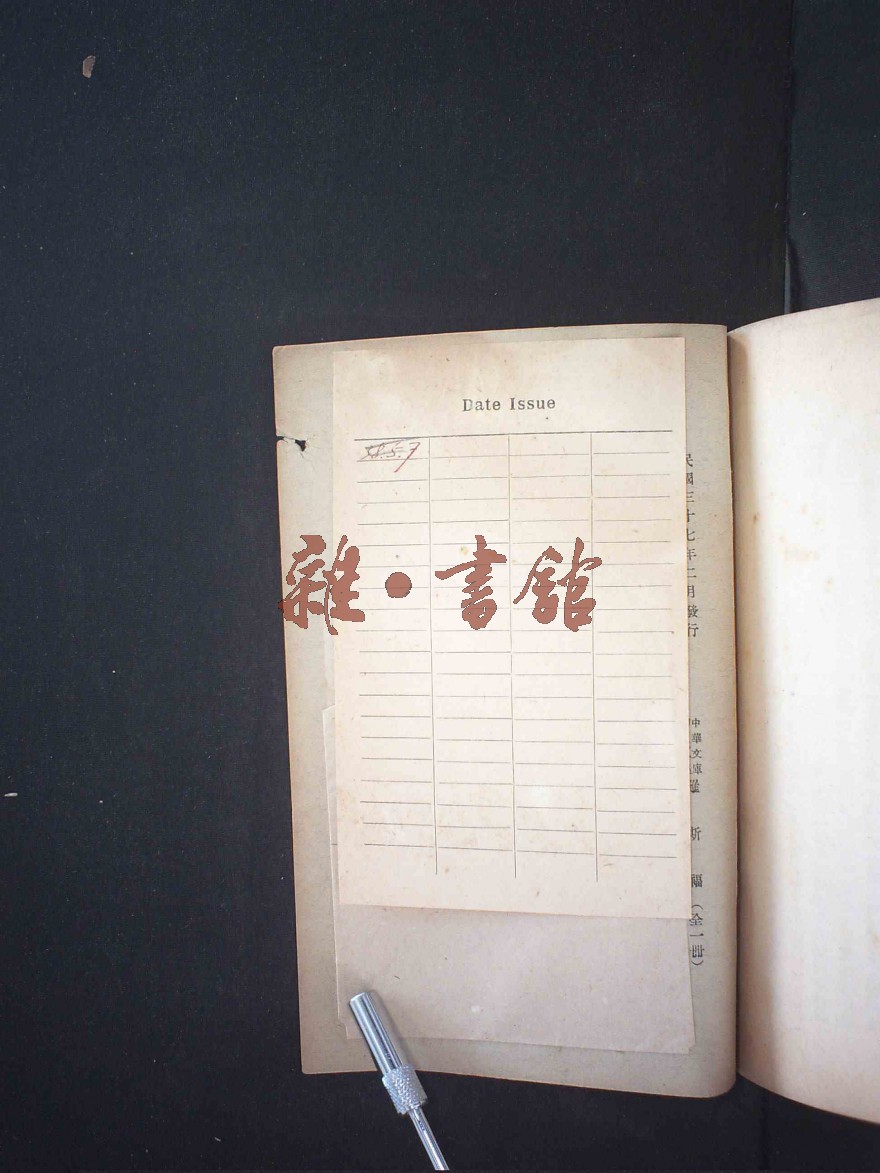 Date Issue
58.5.7
雜·書館
民國三十七年二月發行
中華文庫
羅斯福(全一冊)